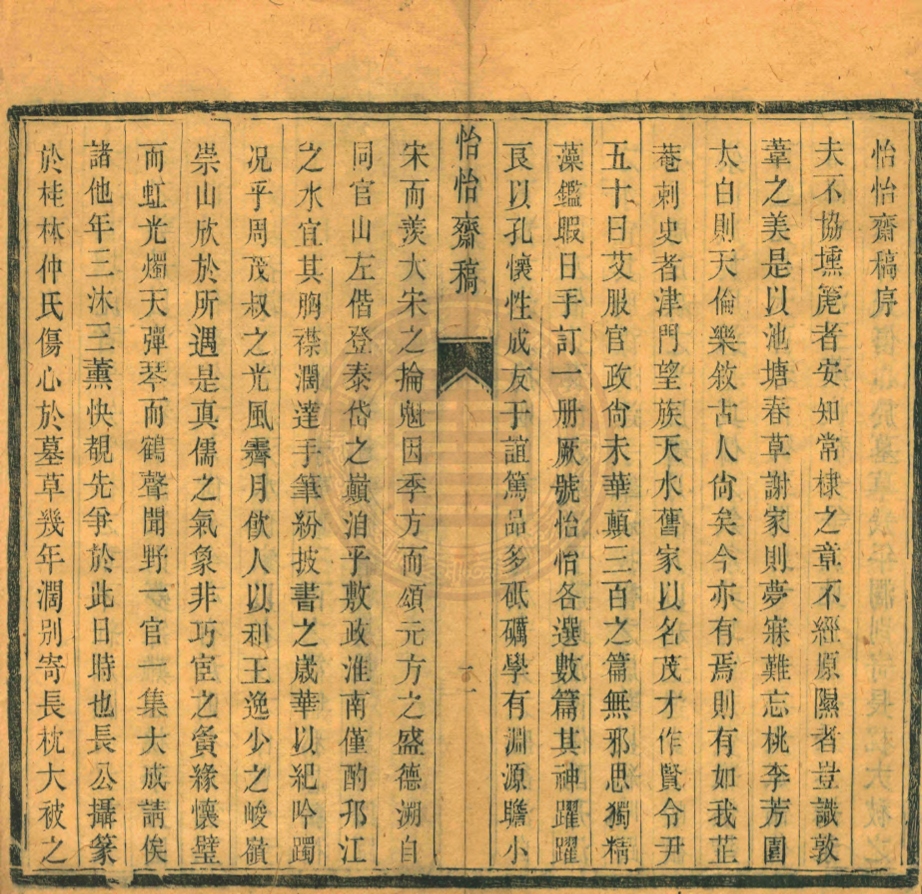 怡怡齋稿序
夫不協壎箎者安知常棣之章不經原隰者豈識敦
葦之美是以池塘春草謝家則夢寐難忘桃李芳園
太白則天倫樂敘古人尙矣今亦有焉則有如我芷
菴刺史者津門望族天水舊家以名茂才作賢令尹
五十日艾服官政尙未華顛三百之篇無邪思獨精
藻鑑暇日手訂一册厥號怡怡各選數篇其神躍躍
良以孔懷性成友于誼篤品多砥礪學有淵源贍小
怡怡齋稿
一
宋而羨大宋之掄魁因季方而頌元方之盛德溯自
同官山左偕登泰岱之巔洎乎敷政淮南僅酌邗江
之水宜其胸襟濶達手筆紛披書之歲華以紀吟躅
况乎周茂叔之光風霽月飮人以和王逸少之峻嶺
崇山欣於所遇是真儒之氣象非巧宦之夤緣懷璧
而虹光燭天彈琴而鶴聲聞野一官一集大成請俟
諸他年三沐三薰快覩先爭於此日時也長公攝篆
於桂林仲氏傷心於墓草幾年濶别寄長枕大被之